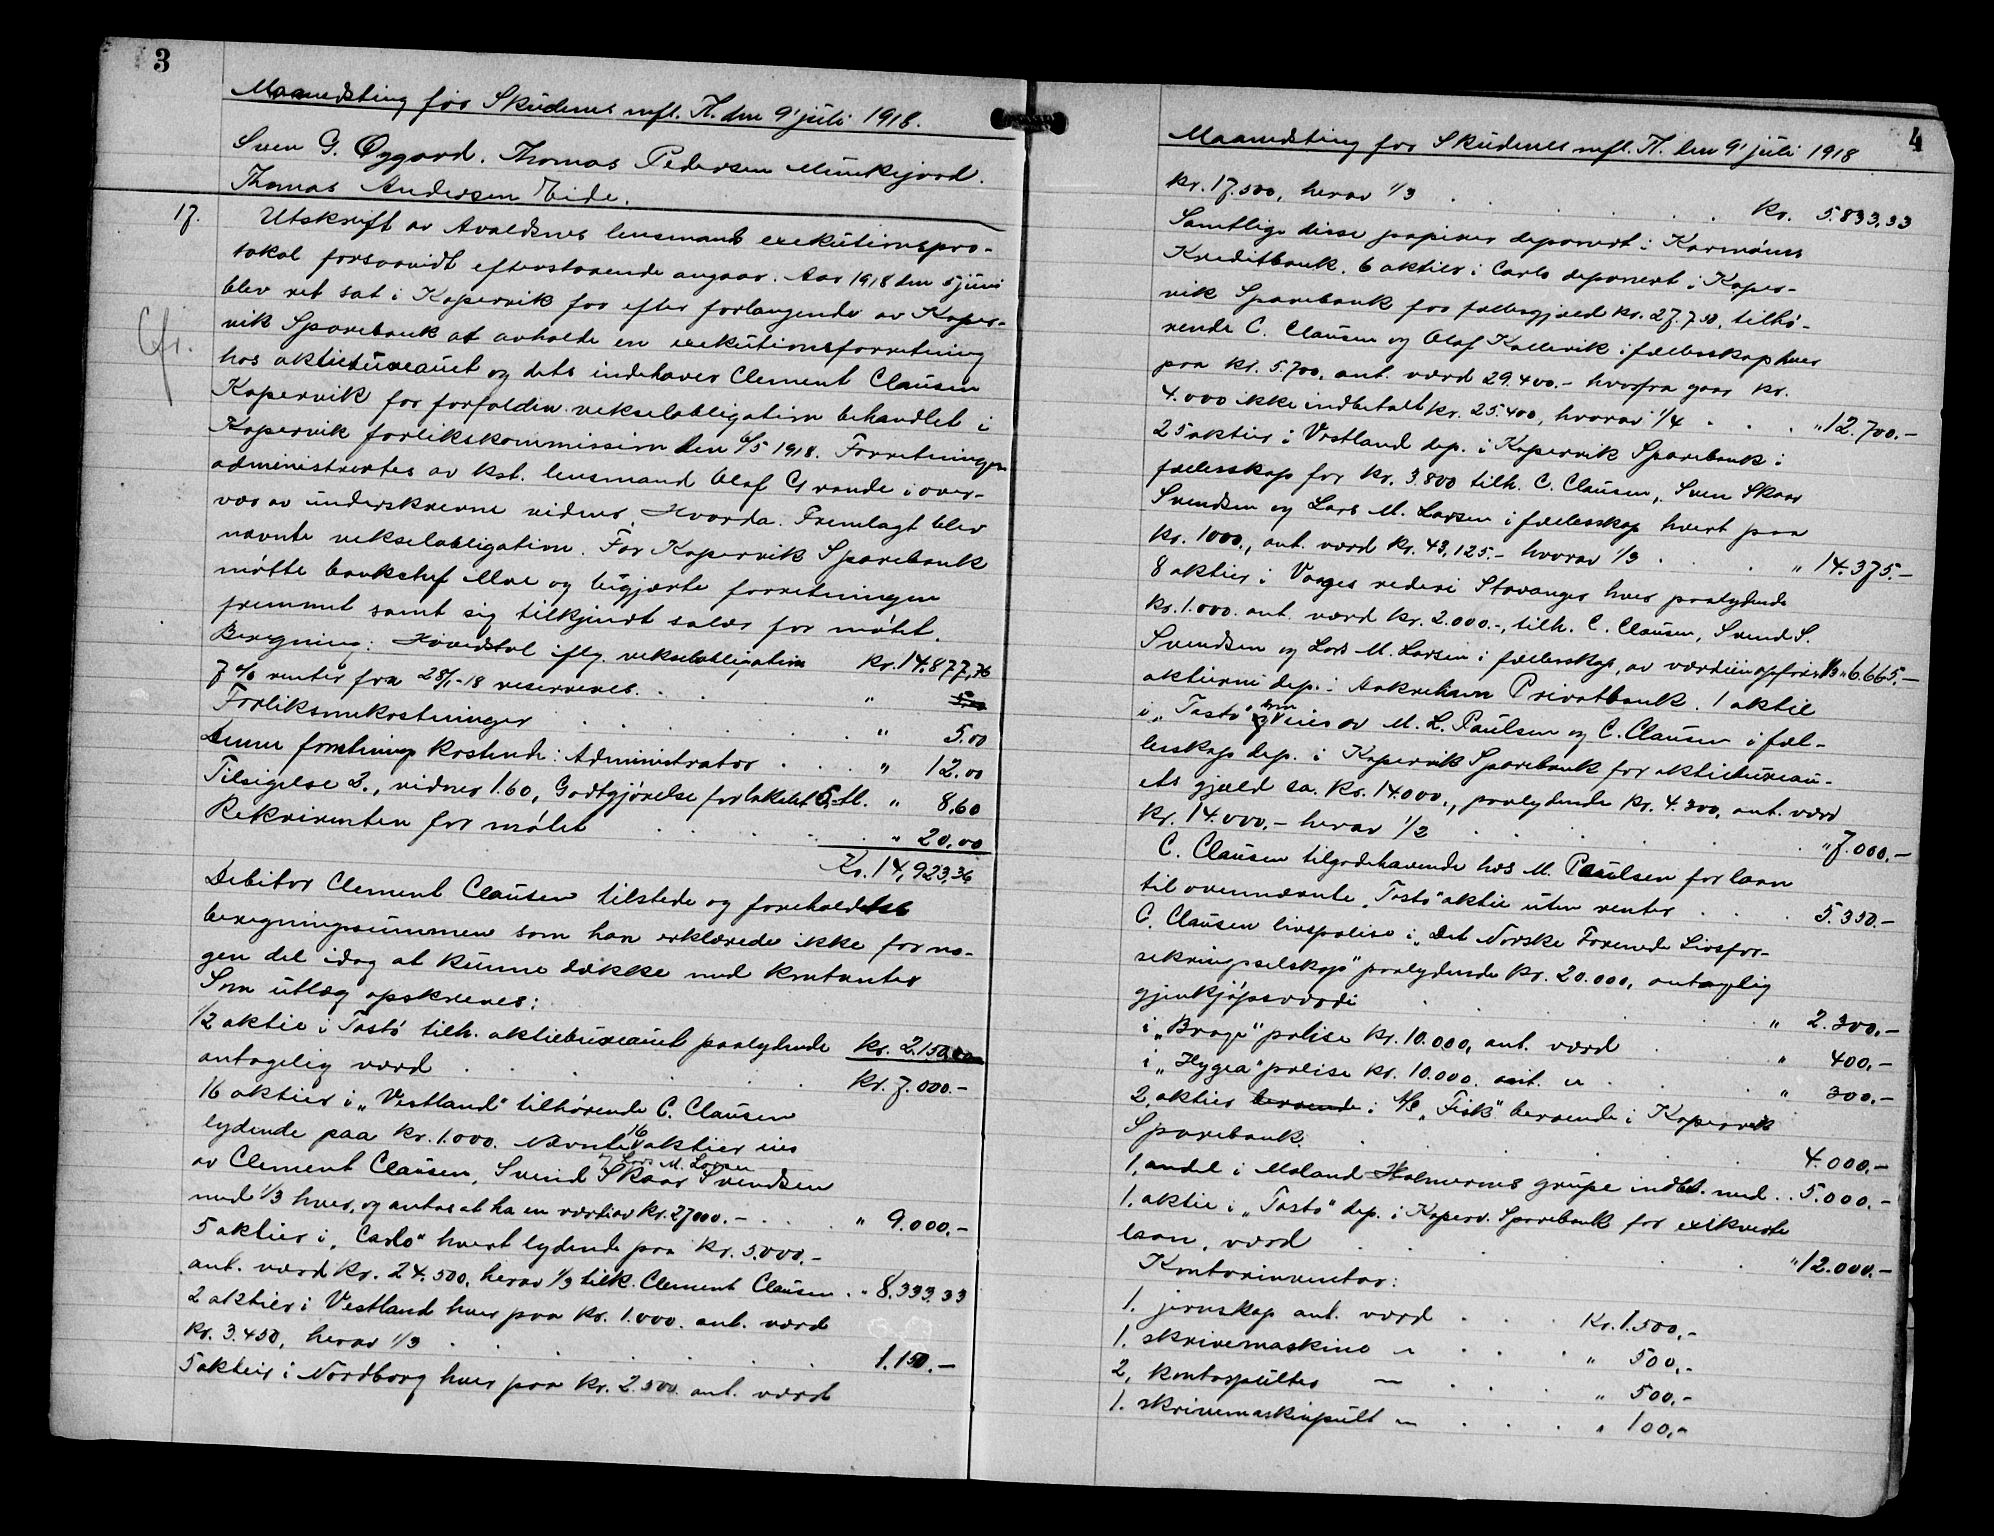 3
Maanedsting for Skudenes mfl. Tl. den 9' juli 1918.
Sven G. Øygard. Thomas Pedersen Munkejord.
Thomas Andersen Eide.
17.
Utskrift av Avaldsnes lensmands exekutionspro-
tokol forsaavidt efterstaaende angaar. Aar 1918 den 5 juni
blev ret sat i Kopervik for efter forlangende av Koper-
vik Sparebank at avholde en exekutionsforretning
Cfr.
hos aktiebureauet og dets indehaver Clement Clausen
Kopervik for forfalden vekselobligation behandlet i
Kopervik forlikskommission den 6/5 1918. Forretningen
administrertes av kst. lensmand Olaf Grande i over-
vær av underskrevne vidner. Hvorda. Fremlagt blev
nævnte vekselobligation. For Kopervik Sparebank
møtte banksjef og begjærte forretningen
fremmet samt sig tilkjendt salær for møtet.
Beregning: Hovedstol iflg. vekselobligation kr. 14.877,76
7 % renter fra 28/1-18 reserveres. . . "
Forliksomkostninger . . . . " 5.00
Denne forretnings kostende: Administrator . . . " 12.00
Tilsigelse 2., vidner 1.60, Godtgjørelse for lokalet 5,- tl. " 8.60
Rekvirenten for møtet . . . . . " 20.00
Kr. 14,923,36
Debitor Clement Clausen tilstede og foreholdtes
beregningssummen som han erklærede ikke for no-
gen del idag at kunne dække med kontanter
Som utlæg opskreves:
1/2 aktie i Tastø tilh. aktiebureauet paalydende kr. 2.150,00
antagelig værd . . . . . . kr. 7.000.-
16 aktier i "Vestland" tilhørende C. Clausen
lydende paa kr. 1.000. Nævnte 16 aktier eies
av Clement Clausen, Svend Skaar Svendsen og Lars M. Larsen
med 1/3 hver, og antas at ha en værdi av kr. 27000.- . . . " 9.000,-
5 aktier i "Carlo" hvert lydende paa kr. 5.000,-
ant. værd kr. 24.500, herav 1/3 tilh. Clement Clausen . " 8.333.33
2 aktier i Vestland hver paa kr. 1.000. ant. værd
kr. 3.450, herav 1/3 . . . . . . 1.150.-
5 aktier i Nordborg hver paa kr. 2.500. ant. værd
4
Maanedsting for Skudenes mfl. Tl. den 9' juli 1918
kr. 17.500, herav 1/3 . . . . . . kr. 5.833,33
Samtlige disse papirer deponert i Karmøens
Kreditbank. 6 aktier i Carlo deponert i Koper-
vik Sparebank for fællesgjæld kr. 27.750, tilhø-
rende C. Clausen og Olaf Kallevik i fællesskap hver
paa kr. 5.700, ant. værd 29.400.- hvorfra gaar kr.
4.000 ikke indbetalt kr. 25.400, hvorav 1/4 . . . . " 12.700.-
25 aktier i Vestland dep. i Kopervik Sparebank i
fællesskap for kr. 3.800 tilh. C. Clausen, Sven Skaar
Svendsen og Lars M. Larsen i fællesskap hvert paa
kr. 1000., ant. værd kr. 43,125.- hvorav 1/3 . . . . " 14.375.-
8 aktier i Vaages rederi Stavanger hver paalydende
kr. 1.000. ant. værd kr. 2.000.-, tilh. C. Clausen, Svend S.
Svendsen og Lars M. Larsen i fællesskap, av værdien opføres 1/3 " 6.665.-
aktierne dep. i Aakrehavn Privatbank. 1 aktie
i "Tastø" som eies av M. L. Paulsen og C. Clausen i fæl-
lesskap dep. i Kopervik Sparebank for aktiebureau-
ets gjæld ca. kr. 14.000., paalydende kr. 4.300, ant. værd
kr. 14.000.- herav 1/2 . . . . . " 7.000.-
C. Clausen tilgodehavende hos M. Paulsen for laan
til ovennævnte "Tastø" aktie uten renter . . . . 5.350.-
C. Clausen livspolise i "Det Norske Forenede Livsfor-
sekringsselskap" paalydende kr. 20.000, antagelig
gjenkjøpsværdi . . . . . " 2.300.-
i "Brage" polise kr. 10.000, ant. værd . . . " 400,-
i "Hygea" polise kr. 10.000. ant. " . . . " 300.-
2, aktier beroende i A/S "Fisk" beroende i Kopervik
Sparebank. . . . . . . 4.000.-
1, andel i Moland Holmernes grupe indbt. med . . 5.000.-
1. aktie i "Tastø" dep. i Koperv. Sparebank for
laan, værd . . . . . . " 12.000.-
Kontorinventar:
1. jernskap ant. værd . . . . Kr. 1.500,-
1. skrivemaskine " . . . . " 500,-
2, kontorpulter " . . . . " 500,-
1. skrivemaskinpult " . . . . " 100,-